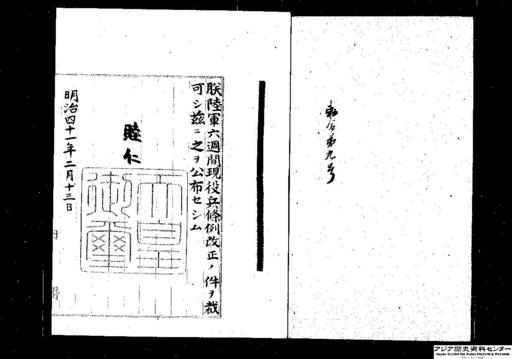 勅令第九号
朕陸軍六週間現役兵條例改正ノ件ヲ裁
可シ茲ニ之ヲ公布セシム
睦仁
天皇御璽
明治四十一年二月十三日
アジア歴史資料センター
Japan Center for Asian Historical Records